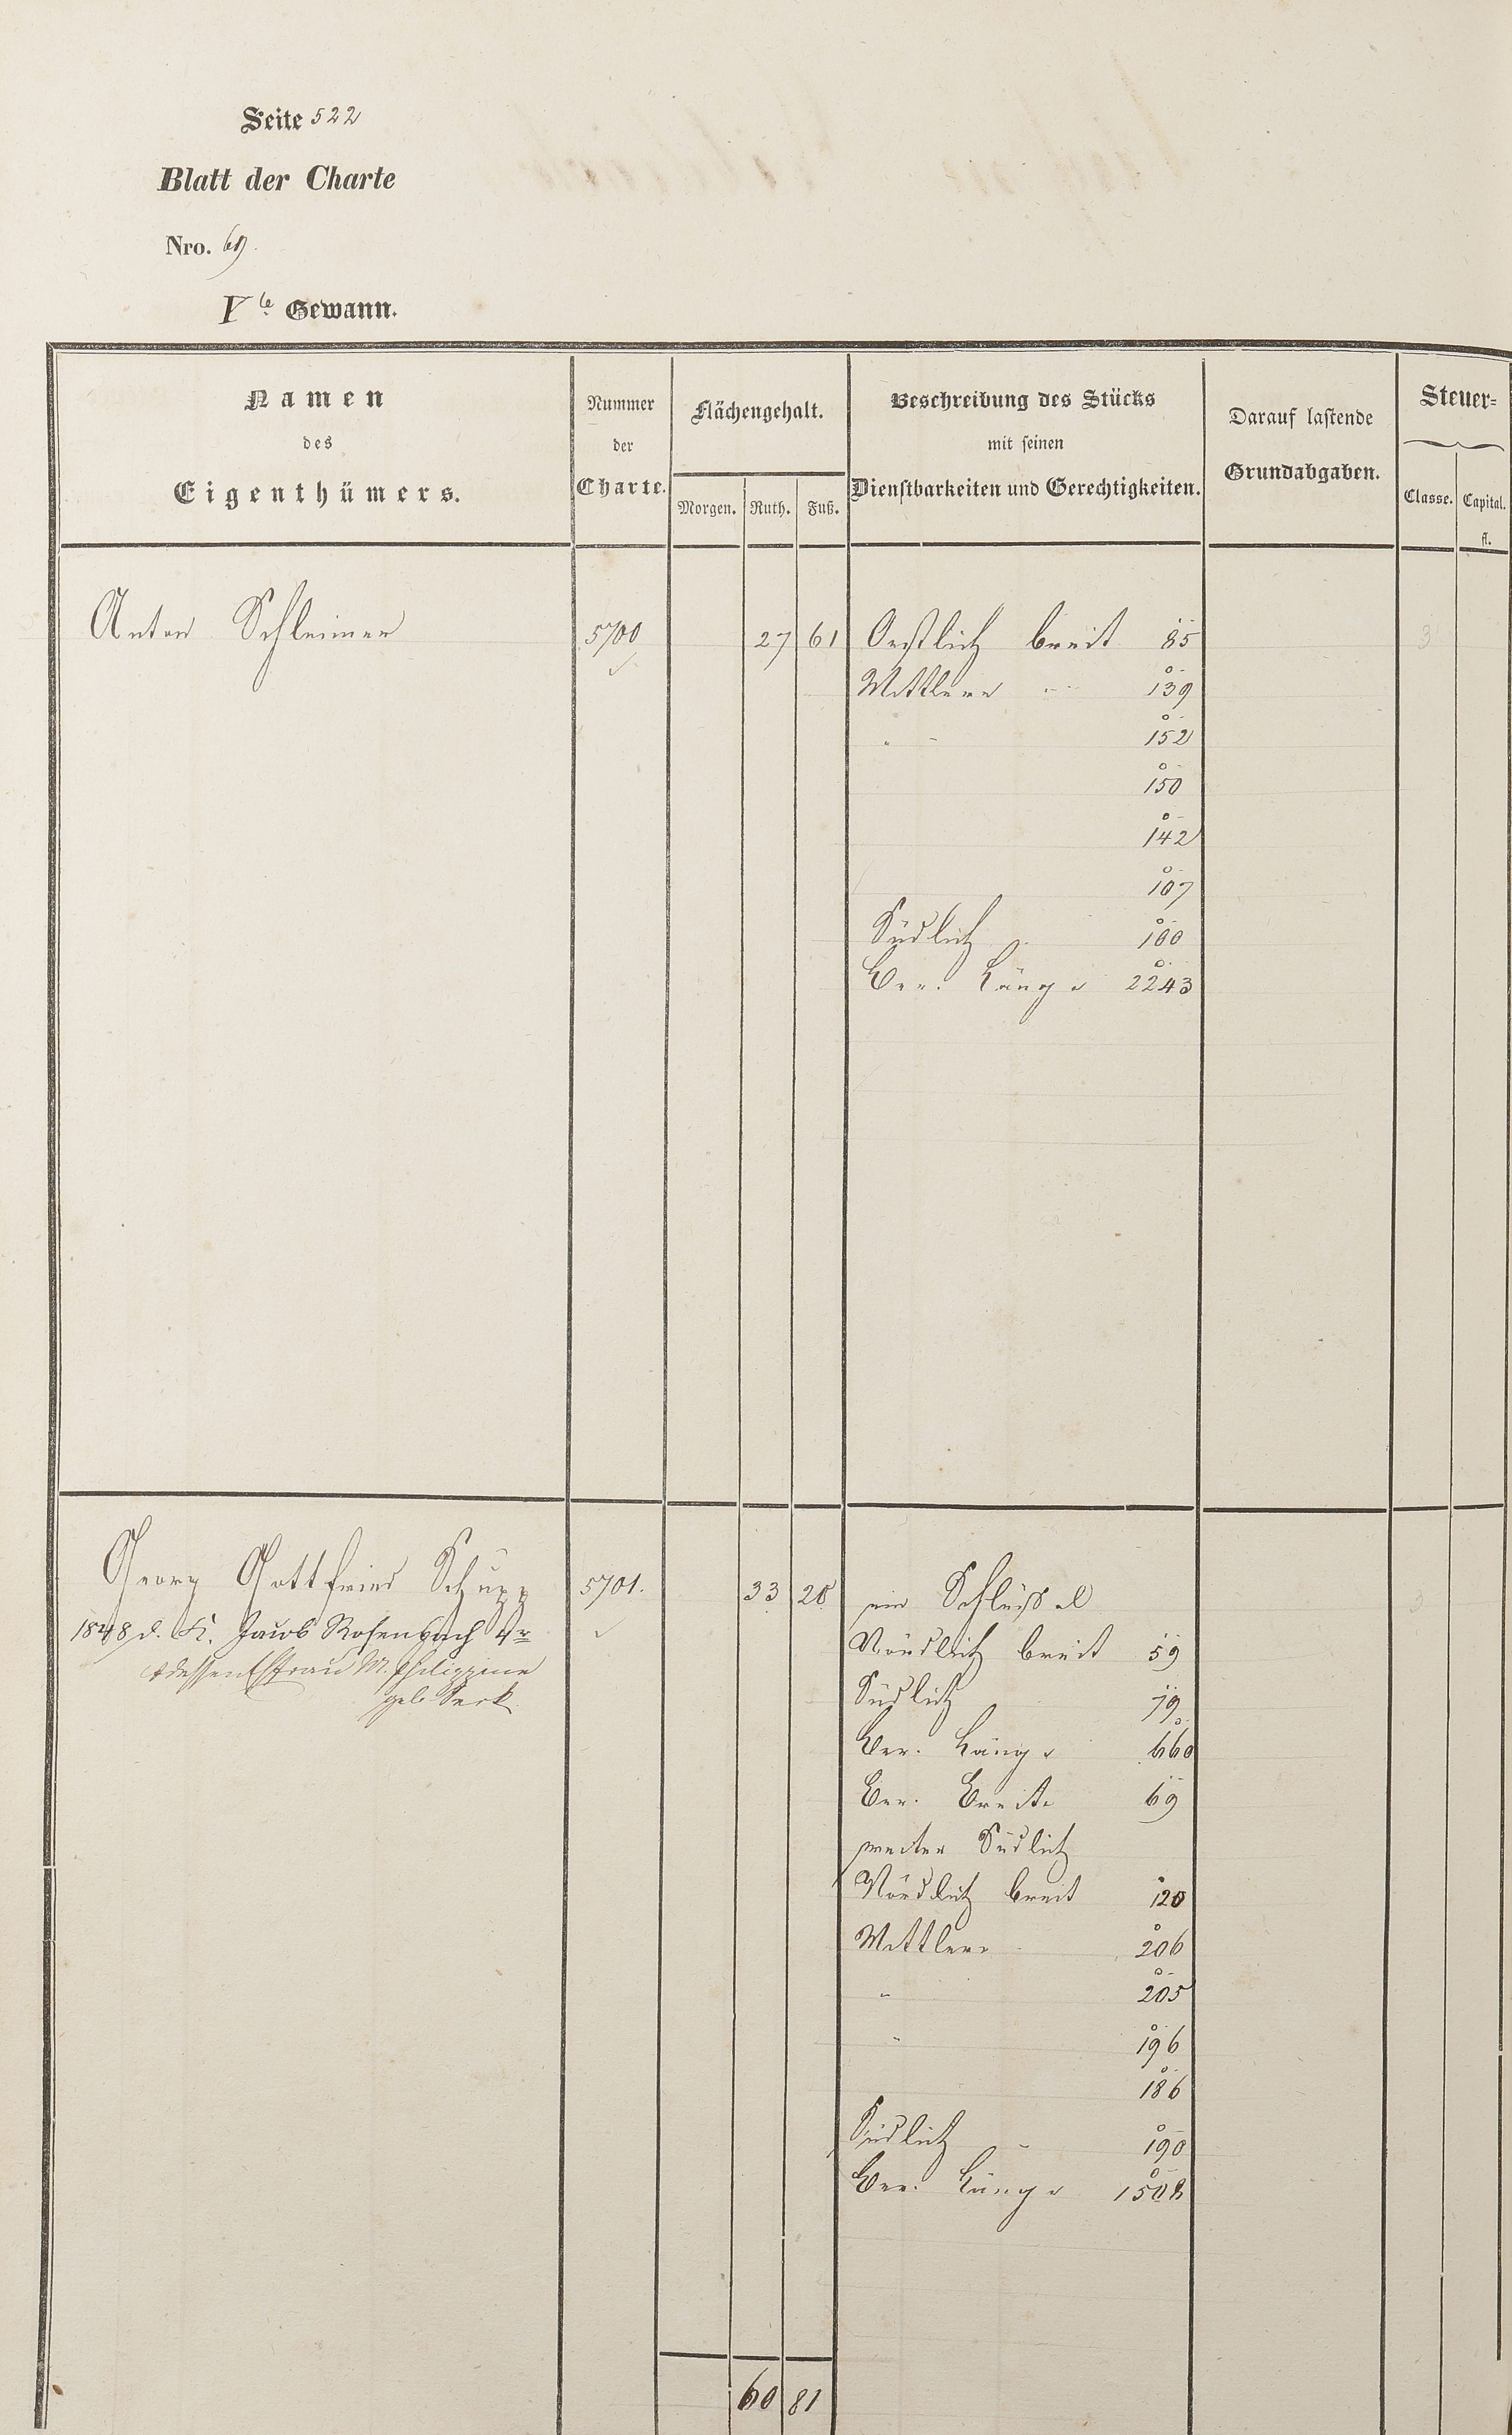 Seite 522
Blatt der Charte
Nro. 69.
Vte Gewann.
Namen
des
Eigenthümers.
Nummer
der
Charte.
Flächengehalt.
Morgen. Ruth. Fuß.
Beschreibung des Stücks
mit seinen
Dienstbarkeiten und Gerechtigkeiten.
Darauf lastende
Grundabgaben.
Steuer=
Classe. Capital.
fl.
Anton Schleimer 5700 27 61 Oestlich breit 85 3
Mittlere " 139
" - 152
150
142
107
Südlich " 100
Ber. Länge 2243
Georg Gottfried Schupp 5701. 33 20 ein Schlüssel 3
1848 d. K. Jacob Rosenbach 4r Nördlich breit 59
& dessen Ehfrau M. Philippine Südlich 79
geb. Serk Ber. Länge 660
Ber. Breite 69
weiter Südlich
Nördlich breit 120
Mittlere 206
" 205
" 196
186
Südlich " 190
Ber. Länge 1508
60 81